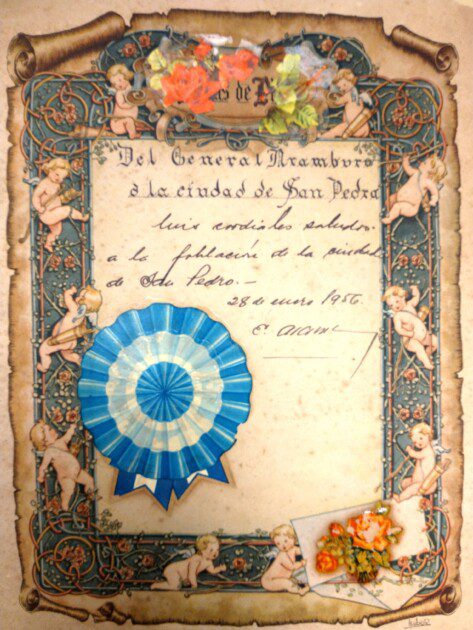 de
Del General Aramburo
a la ciudad de San Pedro
Mis cordiales saludos
a la población de la ciudad
de San Pedro.—
28 de enero 1956